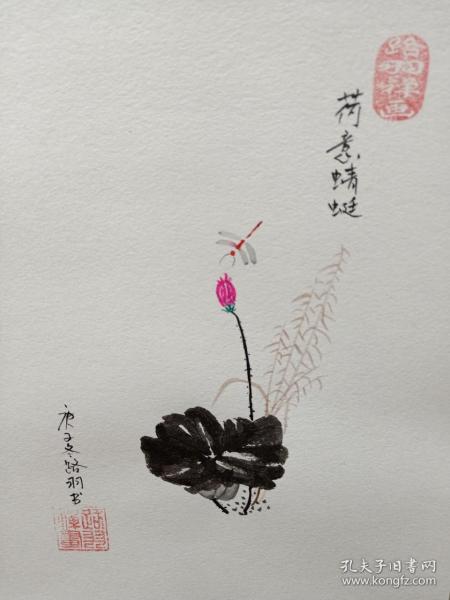 路羽禅画
荷意蜻蜓
庚子冬路羽书
孔夫子旧书网
www.kongfz.com